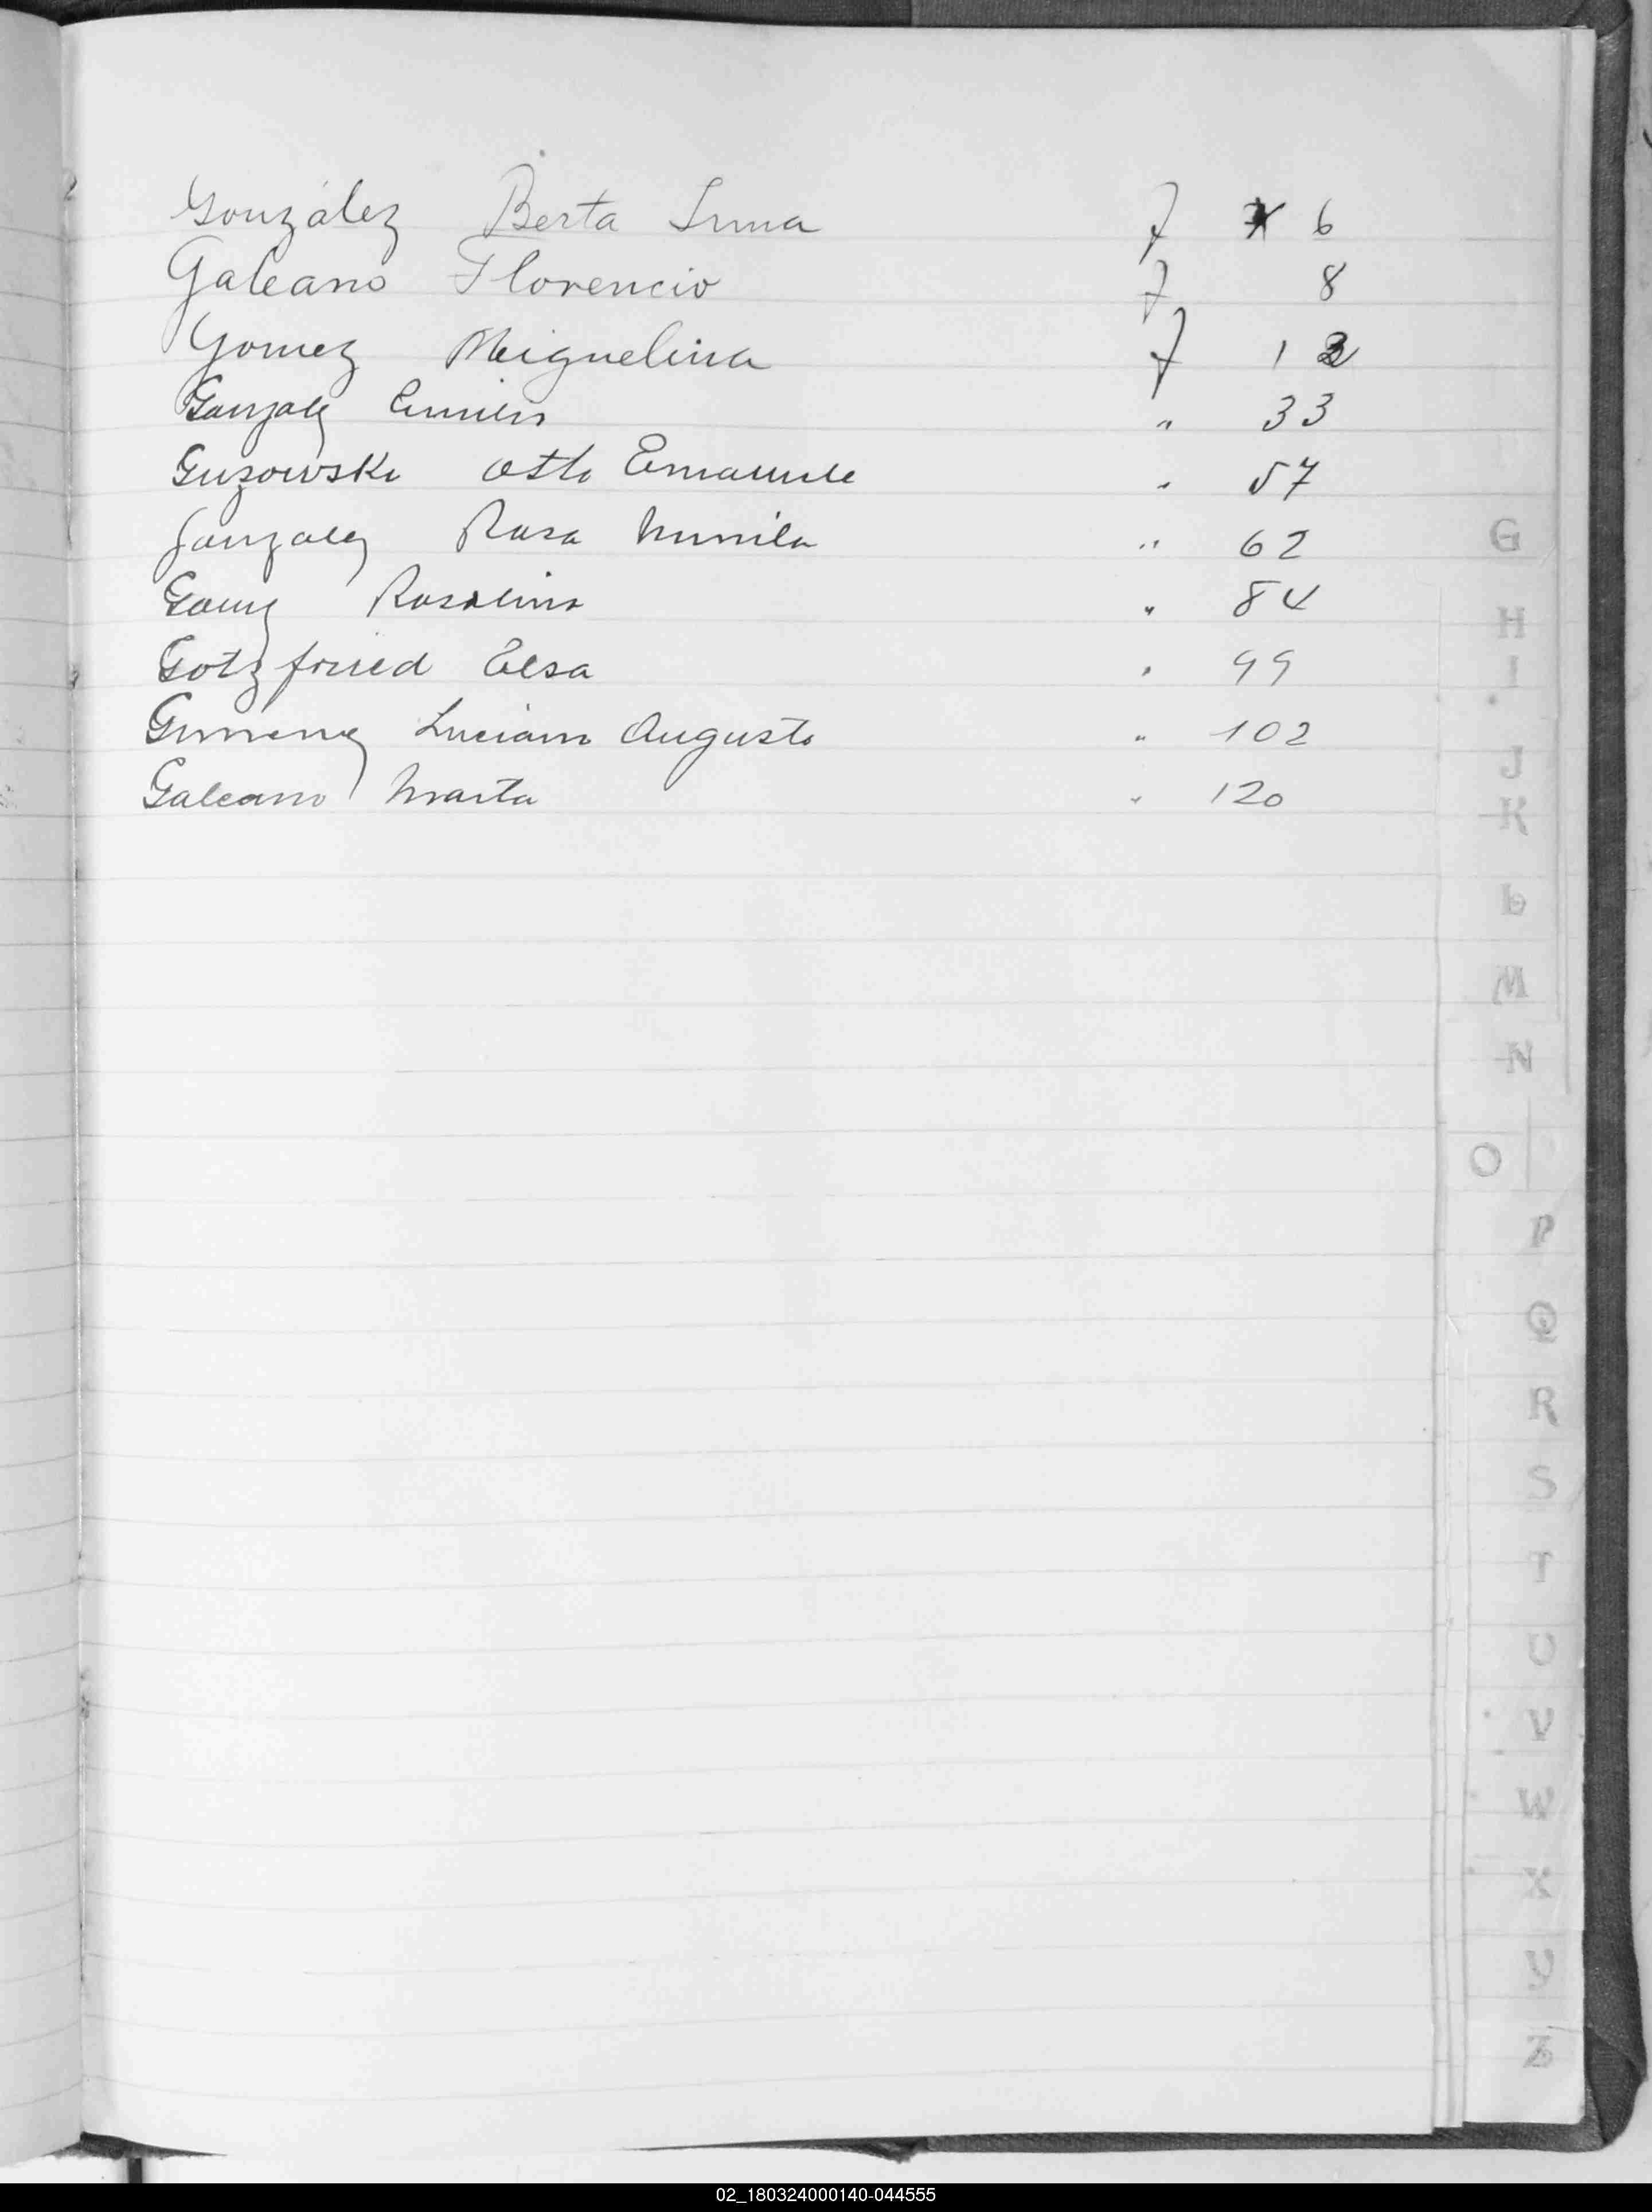 González Berta Irma f 6
Galeano Florencio f 8
Gomez Miguelina f 12
Gonzalez Emilio " 33
Guzowski Otto Emanuele " 57
Gonzalez Rosa Numila " 62
Gomez Rosalino " 84
Gotzfried Elsa " 99
Gimenez Luciano Augusto " 102
Galeano Marta " 120
G
H
I
J
K
L
M
N
O
P
Q
R
S
T
U
V
W
X
Y
Z
02_180324000140-044555